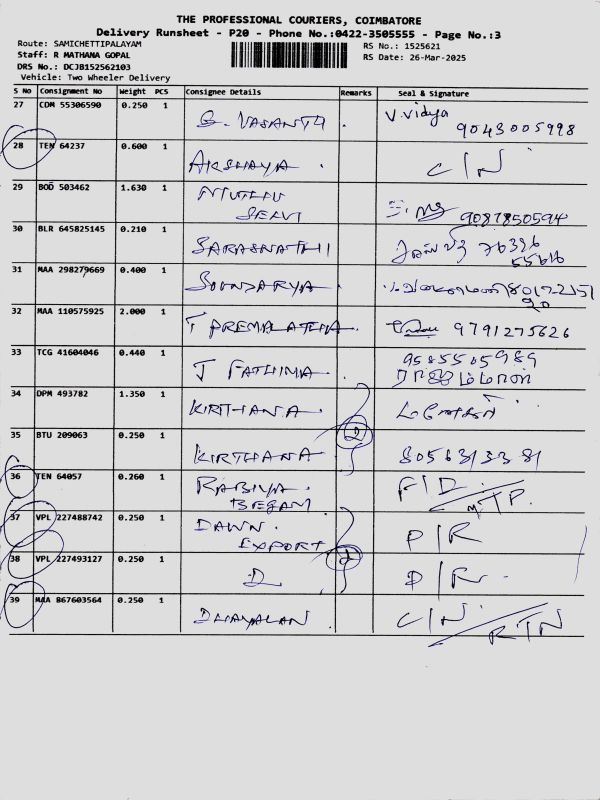 THE PROFESSIONAL COURIERS, COIMBATORE
Delivery Runsheet - P20 - Phone No.:0422-3505555 - Page No.:3
Route: SAMICHETTIPALAYAM
Staff: R MATHANA GOPAL
DRS No.: DCJB152562103
Vehicle: Two Wheeler Delivery
RS No.: 1525621
RS Date: 26-Mar-2025
S No Consignment No Weight PCS Consignee Details Remarks Seal & Signature
27 CDM 55306590 0.250 1 G. VASANTH. V. Vidya
9043005998
28 TEN 64237 0.600 1 AKSHAYA. C/N
29 BOD 503462 1.630 1 MUTHU
SELVI 9087850594
30 BLR 645825145 0.210 1 SARASWATHI 76326
55616
31 MAA 298279669 0.400 1 SOUNDARYA
32 MAA 110575925 2.000 1 T PREMALATHA. 9791275626
33 TCG 41604046 0.440 1 J FATHIMA. 9585505989
ராஜம்மாள்
34 DPM 493782 1.350 1 KIRTHANA.
2
35 BTU 209063 0.250 1 KIRTHANA. 8056313381
36 TEN 64057 0.260 1 RABIYA.
BEGAM F/D. MTP.
37 VPL 227488742 0.250 1 DAWN.
EXPORT P/R
2
38 VPL 227493127 0.250 1 D P/R.
39 MAA 867603564 0.250 1 DHAYALAN. C/N. RTN